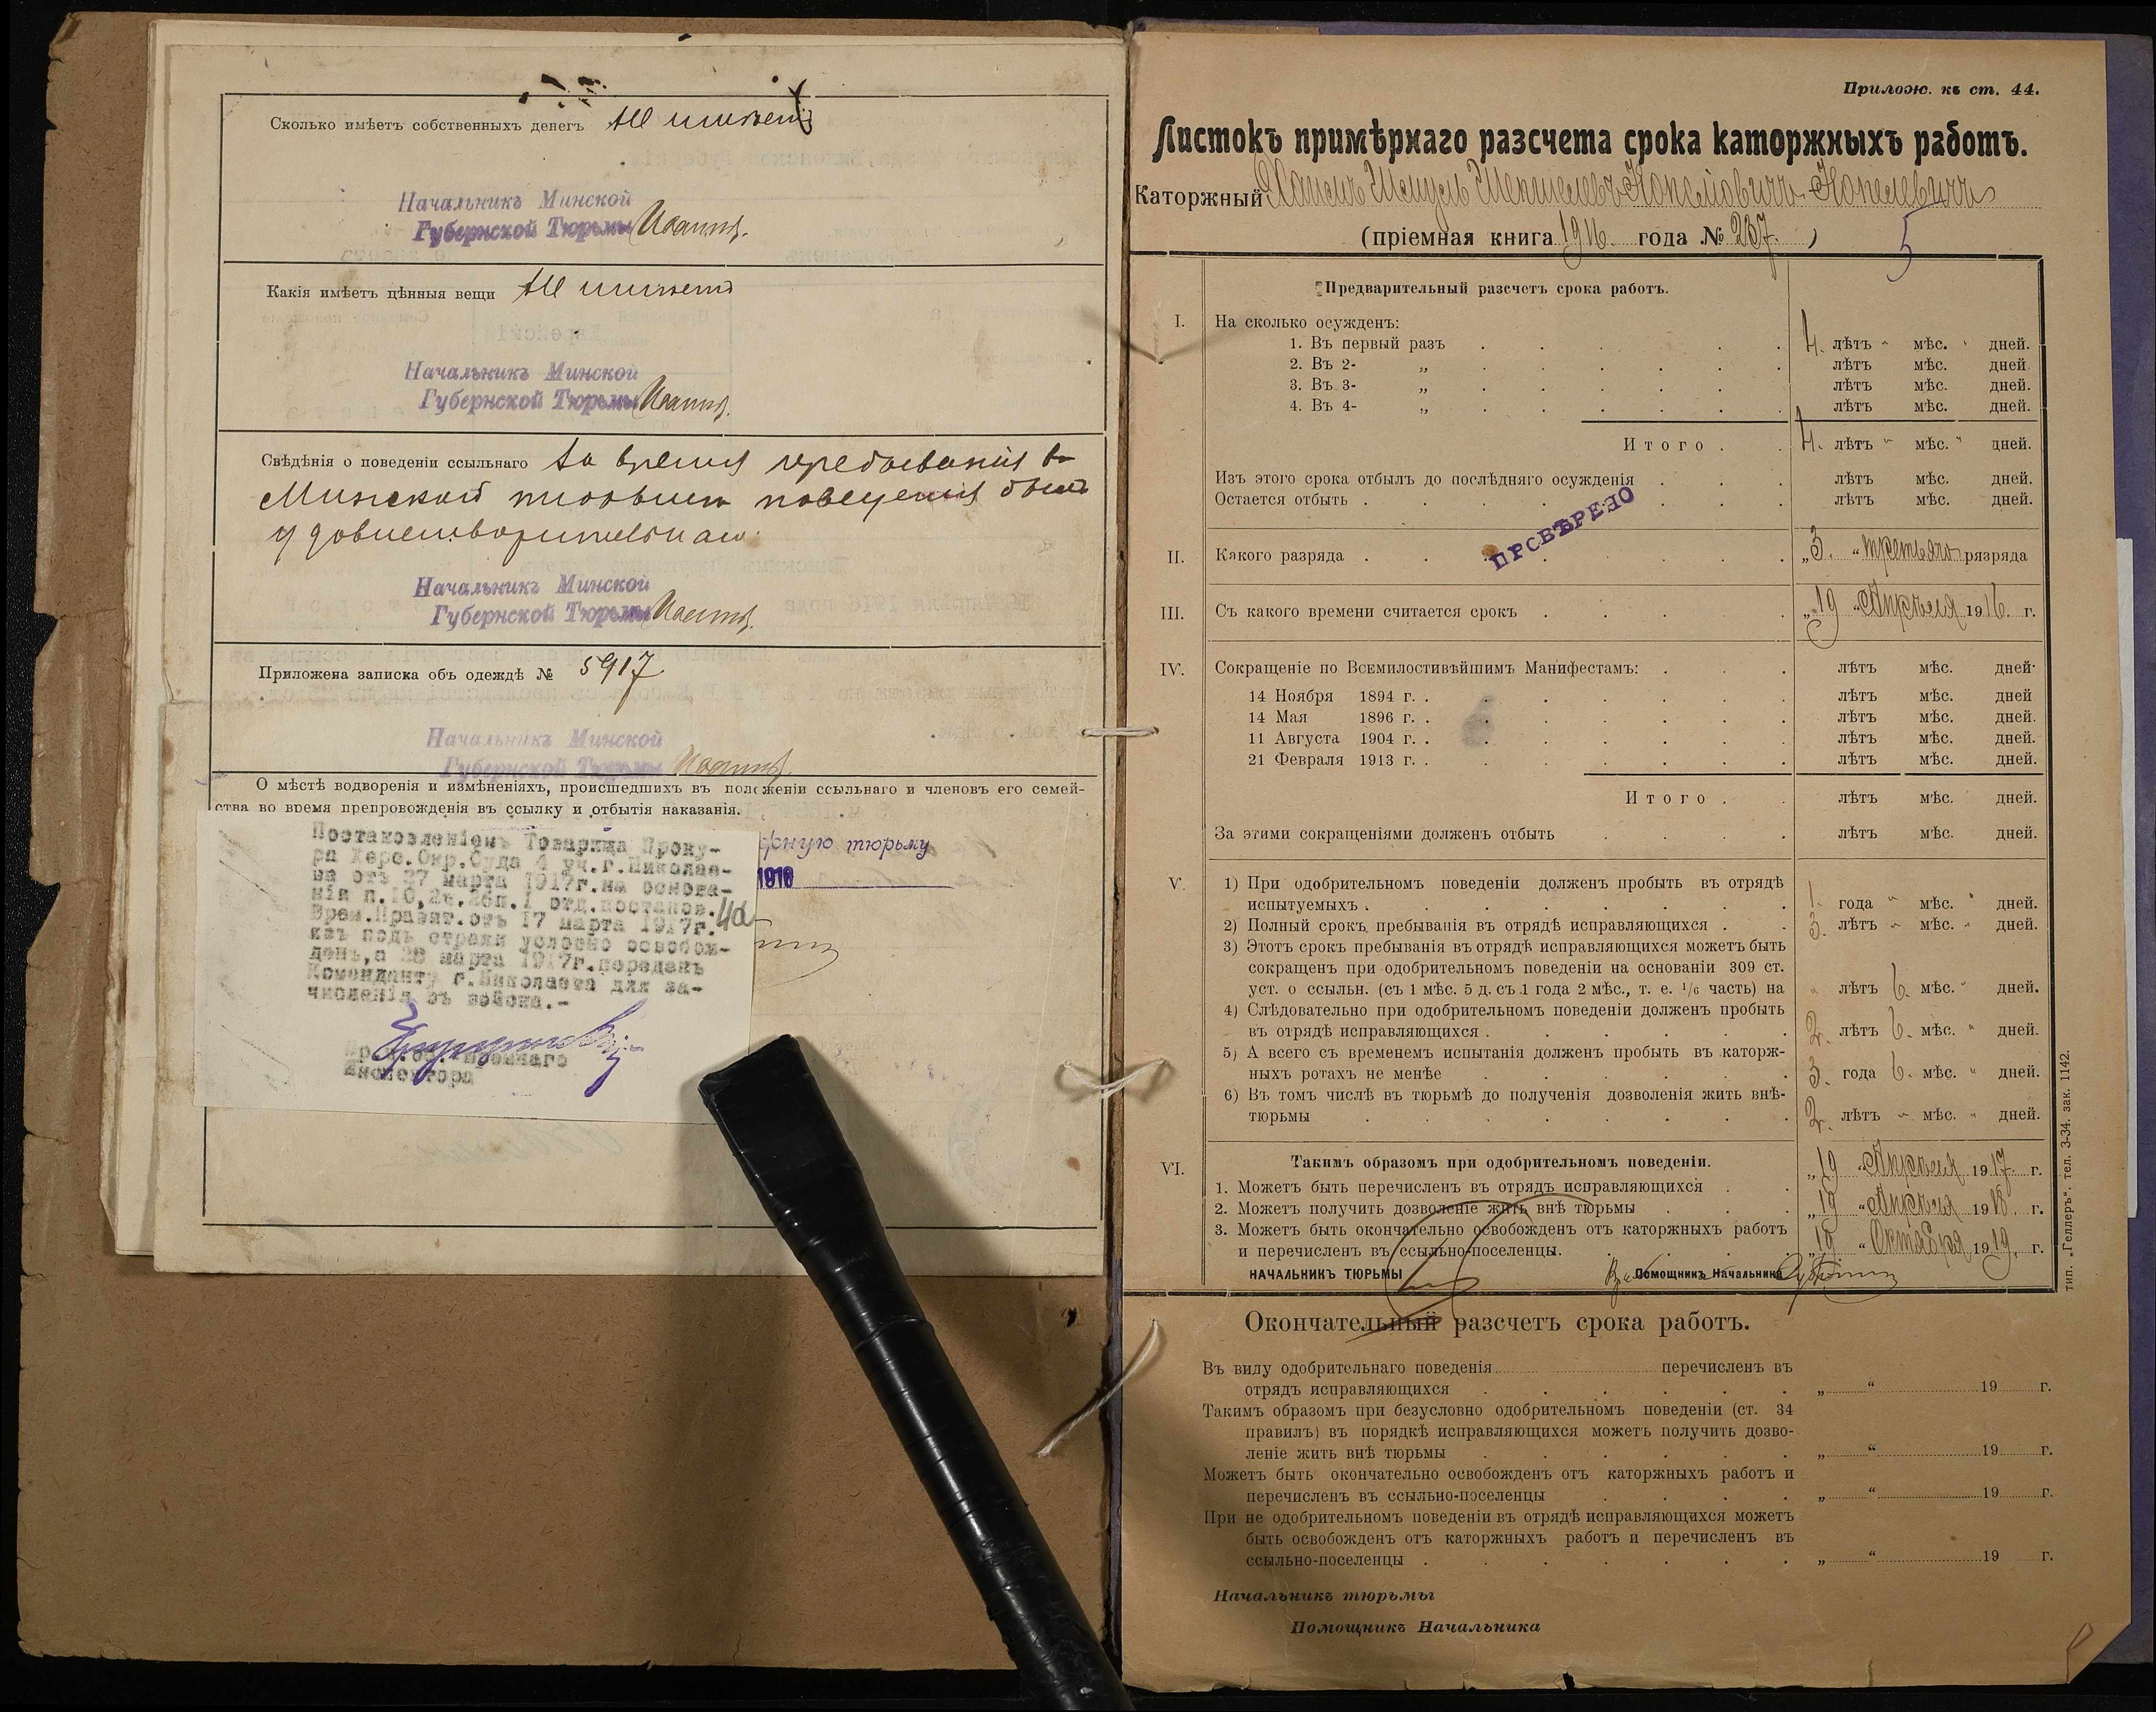 Сколько имѣетъ собственныхъ денегъ Не имѣетъ
Начальникъ Минской
Губернской Тюрьмы
Какія имѣетъ цѣнныя вещи Не имѣетъ
Начальникъ Минской
Губернской Тюрьмы
Свѣдѣнія о поведеніи ссыльнаго За время пребыванія въ
Минской тюрьмѣ поведенія былъ
удовлетворительнаго.
Начальникъ Минской
Губернской Тюрьмы
Приложена записка объ одеждѣ № 5917
Начальникъ Минской
Губернской Тюрьмы
О мѣстѣ водворенія и измѣненіяхъ, происшедшихъ въ положеніи ссыльнаго и членовъ его семей-
ства во время препровожденія въ ссылку и отбытія наказанія.
Постановленіемъ Товарища Проку-
ра Херс.Окр.Суда 4 уч.г.Николае-
ва отъ 27 марта 1917г.на основа-
ніи п.10, 2б.1 отд.постанов.
Врем.Правит.отъ 17 марта 1917г.
изъ подъ стражи условно освобож-
денъ,а 28 марта 1917г.переданъ
Коменданту г.Николаева для за-
численія въ войска.-
Тюремнаго
Инспектора
тюрьму
1916
Прилож. къ ст. 44.
Листокъ примѣрнаго разсчета срока каторжныхъ работъ.
Каторжный
(пріемная книга 1916 года № 237.)
5
Предварительный разсчетъ срока работъ.
I. На сколько осужденъ:
1. Въ первый разъ 4. лѣтъ " мѣс. " дней.
2. Въ 2- „ лѣтъ мѣс. дней
3. Въ 3- „ лѣтъ мѣс. дней.
4. Въ 4- „ лѣтъ мѣс. дней.
Итого 4. лѣтъ " мѣс. " дней.
Изъ этого срока отбылъ до послѣдняго осужденія лѣтъ мѣс. дней.
Остается отбыть лѣтъ мѣс. дней.
ПРОВѢРЕНО
II. Какого разряда „3.“ третьяго разряда
III. Съ какого времени считается срокъ „19“ Апрѣля 1916 г.
IV. Сокращеніе по Всемилостивѣйшимъ Манифестамъ: лѣтъ мѣс. дней
14 Ноября 1894 г. лѣтъ мѣс. дней
14 Мая 1896 г. лѣтъ мѣс. дней.
11 Августа 1904 г. лѣтъ мѣс. дней.
21 Февраля 1913 г. лѣтъ мѣс. дней.
Итого лѣтъ мѣс. дней.
За этими сокращеніями долженъ отбыть лѣтъ мѣс. дней.
V. 1) При одобрительномъ поведеніи долженъ пробыть въ отрядѣ
испытуемыхъ 1. года " мѣс. " дней.
2) Полный срокъ пребыванія въ отрядѣ исправляющихся 3. лѣтъ " мѣс. " дней.
3) Этотъ срокъ пребыванія въ отрядѣ исправляющихся можетъ быть
сокращенъ при одобрительномъ поведеніи на основаніи 309 ст.
уст. о ссыльн. (съ 1 мѣс. 5 д. съ 1 года 2 мѣс., т. е. 1/6 часть) на " лѣтъ 6. мѣс. " дней.
4) Слѣдовательно при одобрительномъ поведеніи долженъ пробыть
въ отрядѣ исправляющихся 2. лѣтъ 6. мѣс. " дней.
5) А всего съ временемъ испытанія долженъ пробыть въ каторж-
ныхъ ротахъ не менѣе 3. года 6. мѣс. " дней.
6) Въ томъ числѣ въ тюрьмѣ до полученія дозволенія жить внѣ-
тюрьмы 2. лѣтъ " мѣс. " дней.
VI. Такимъ образомъ при одобрительномъ поведеніи.
1. Можетъ быть перечисленъ въ отрядъ исправляющихся „19“ Апрѣля 1917 г.
2. Можетъ получить дозволеніе жить внѣ тюрьмы „19“ Апрѣля 1918. г.
3. Можетъ быть окончательно освобожденъ отъ каторжныхъ работъ
и перечисленъ въ ссыльно-поселенцы. „19“ Октября 1919. г.
НАЧАЛЬНИКЪ ТЮРЬМЫ Помощникъ Начальника
Окончательный разсчетъ срока работъ.
Въ виду одобрительнаго поведенія перечисленъ въ
отрядъ исправляющихся „ “ 19 г.
Такимъ образомъ при безусловно одобрительномъ поведеніи (ст. 34
правилъ) въ порядкѣ исправляющихся можетъ получить дозво-
леніе жить внѣ тюрьмы „ “ 19 г.
Можетъ быть окончательно освобожденъ отъ каторжныхъ работъ и
перечисленъ въ ссыльно-поселенцы „ “ 19 г.
При не одобрительномъ поведеніи въ отрядѣ исправляющихся можетъ
быть освобожденъ отъ каторжныхъ работъ и перечисленъ въ
ссыльно-поселенцы „ “ 19 г.
Начальникъ тюрьмы
Помощникъ Начальника
тип. „Геллеръ“. тел. 3-34. зак. 1142.